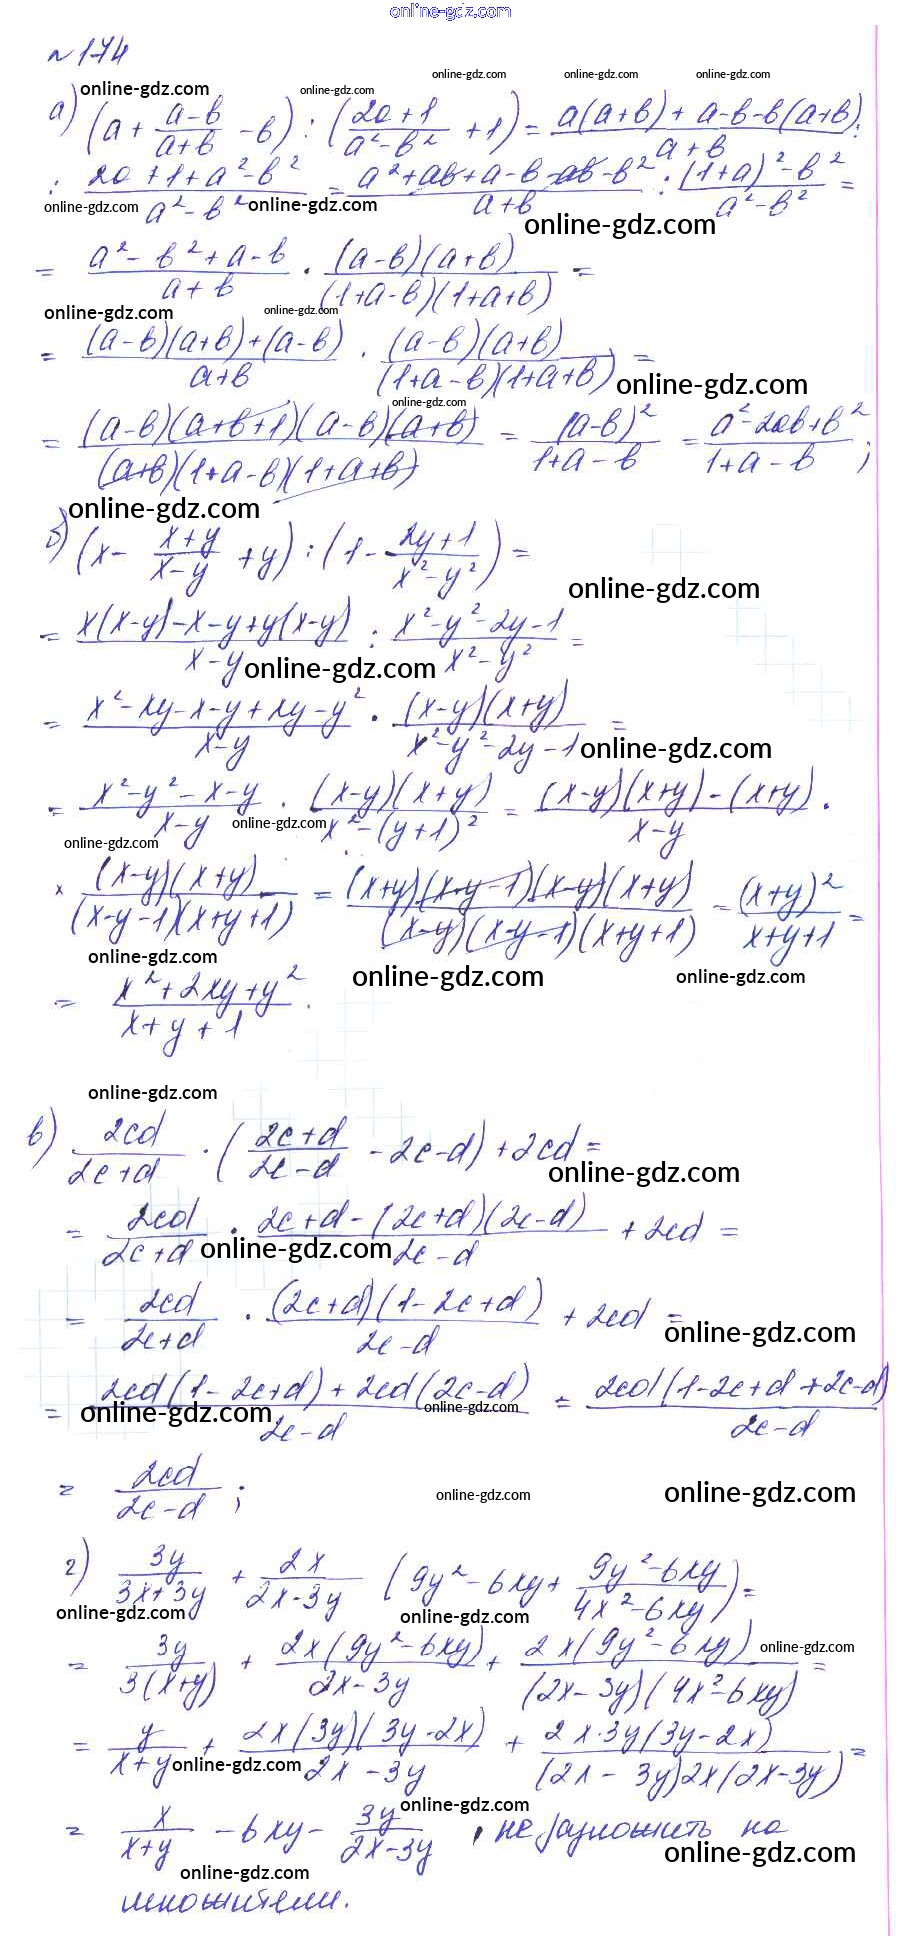 online-gdz.com
№174
online-gdz.com online-gdz.com online-gdz.com
online-gdz.com
а) (a + (a-b)/(a+b) - b) : ((2a+1)/(a²-b²) + 1) = (a(a+b)+a-b-b(a+b))/(a+b) :
: (2a+1+a²-b²)/(a²-b²) = (a²+ab+a-b-ab-b²)/(a+b) : ((1+a)²-b²)/(a²-b²) =
online-gdz.com online-gdz.com online-gdz.com
= (a²-b²+a-b)/(a+b) · ((a-b)(a+b))/((1+a-b)(1+a+b)) =
online-gdz.com online-gdz.com
= ((a-b)(a+b)+(a-b))/(a+b) · ((a-b)(a+b))/((1+a-b)(1+a+b)) =
online-gdz.com
online-gdz.com
= ((a-b)(a+b+1)(a-b)(a+b))/((a+b)(1+a-b)(1+a+b)) = (a-b)²/(1+a-b) = (a²-2ab+b²)/(1+a-b) ;
online-gdz.com
б) (x - (x+y)/(x-y) + y) : (1 - (2y+1)/(x²-y²)) =
online-gdz.com
= (x(x-y)-x-y+y(x-y))/(x-y) : (x²-y²-2y-1)/(x²-y²) =
online-gdz.com
= (x²-xy-x-y+xy-y²)/(x-y) · ((x-y)(x+y))/(x²-y²-2y-1) =
online-gdz.com
= (x²-y²-x-y)/(x-y) · ((x-y)(x+y))/(x²-(y+1)²) = ((x-y)(x+y)-(x+y))/(x-y) ·
online-gdz.com online-gdz.com
× ((x-y)(x+y))/((x-y-1)(x+y+1)) = ((x+y)(x-y-1)(x-y)(x+y))/((x-y)(x-y-1)(x+y+1)) = (x+y)²/(x+y+1) =
online-gdz.com online-gdz.com online-gdz.com
= (x²+2xy+y²)/(x+y+1) .
online-gdz.com
в) 2cd/(2c+d) · ((2c+d)/(2c-d) - 2c-d) + 2cd =
online-gdz.com
= 2cd/(2c+d) · (2c+d-(2c+d)(2c-d))/(2c-d) + 2cd =
online-gdz.com
= 2cd/(2c+d) · ((2c+d)(1-2c+d))/(2c-d) + 2cd =
online-gdz.com
= (2cd(1-2c+d)+2cd(2c-d))/(2c-d) = (2cd(1-2c+d+2c-d))/(2c-d)
online-gdz.com online-gdz.com
= 2cd/(2c-d) ;
online-gdz.com online-gdz.com
г) 3y/(3x+3y) + 2x/(2x-3y) (9y²-6xy + (9y²-6xy)/(4x²-6xy)) =
online-gdz.com online-gdz.com
= 3y/(3(x+y)) + (2x(9y²-6xy))/(2x-3y) + (2x(9y²-6xy))/((2x-3y)(4x²-6xy)) =
online-gdz.com
= y/(x+y) + (2x(3y)(3y-2x))/(2x-3y) + (2x·3y(3y-2x))/((2x-3y)2x(2x-3y)) =
online-gdz.com
online-gdz.com
= x/(x+y) - 6xy - 3y/(2x-3y) , не разложить на
online-gdz.com online-gdz.com
множители.